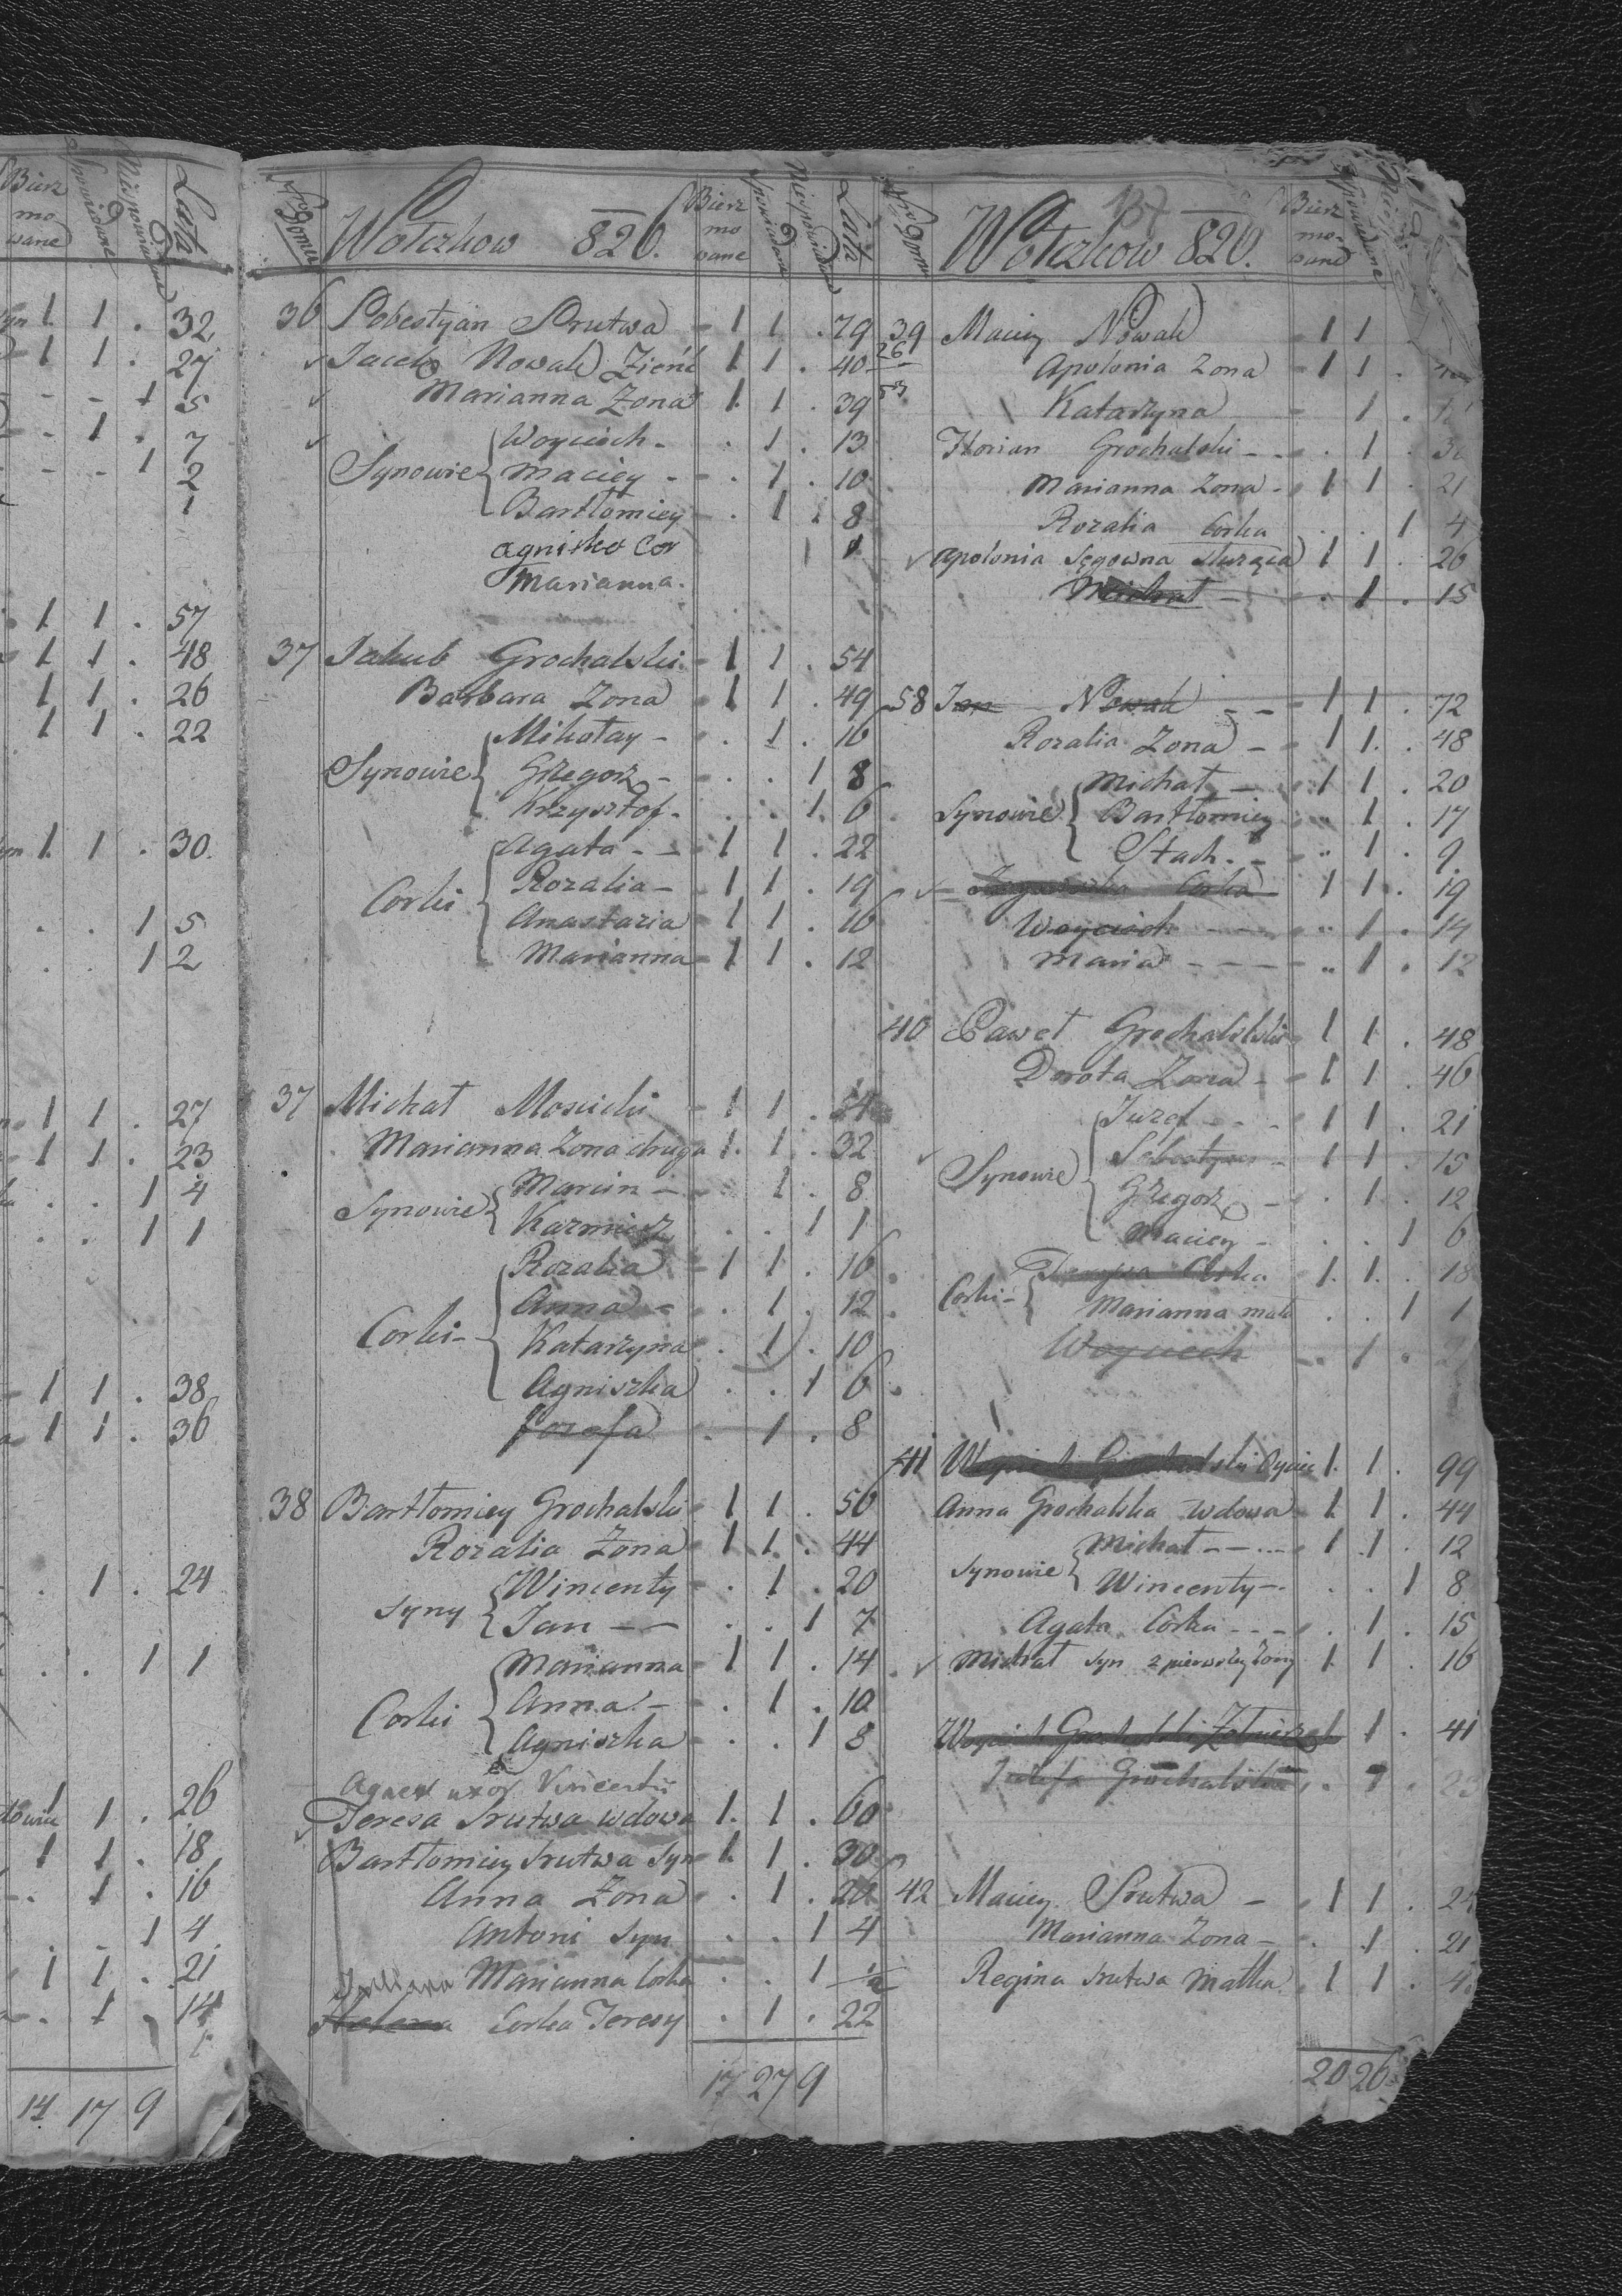 Bierz
mo
wane
Lata
1 1 . 32
1 1 . 27
- - 1 5
- 1 . 7
- - 1 2
1
1 1 . 57
1 1 . 48
1 1 . 26
1 1 . 22
1 1 . 30
. . 1 5
. . 1 2
1 1 . 27
1 1 . 23
. . 1 4
. . 1 1
1 1 . 38
1 1 . 36
. 1 . 24
. . 1 1
1 . 26
1 1 . 18
. 1 . 16
. - 1 4
1 1 . 21
. 1 . 14
14 17 9
Nro Domu
Wołczkow 820.
Bierz
mo
wane
Spowiadane
Niespowiadane
Lata
36 Sobestyan Srutwa - 1 1 . 79
Jacek Nowak Zieńć 1 1 . 40
Marianna Zona 1. 1 . 39
Synowie
Woyciech - . 1 . 13
Maciey - - . 1 . 10
Bartłomiey - . 1 . 8
Agniszka Cor 1
Marianna.
37 Jakub Grochalski - 1 1 . 54
Barbara Zona - 1 1 . 49
Synowie
Mikołay - . 1 . 16
Grzegorz - - . . 1 8
Krzysztof - . . 1 6
Corki
Agata - - 1 1 . 22
Rozalia - - 1 1 . 19
Anastazia - 1 1 . 16
Marianna - 1 1 . 12
37 Michał Moscicki - 1 1 .
Marianna Zona druga 1. 1 . 32
Synowie
Marcin - - 1 . 8
Kazmierz . . 1 1
Corki -
Rozalia - 1 1 . 16
Anna - . 1 . 12
Katarzyna . 1 . 10
Agniszka . . 1 6
Jozefa . 1 . 8
38 Bartłomiey Grochalski - 1 1 . 50
Rozalia Zona - 1 1 . 44
Syny
Wincenty - . 1 . 20
Jan - - . . 1 7
Corki
Marianna - 1 1 . 14
Anna - - . 1 . 10
Agniszka - . . 1 8
Agnes uxor Vincentii
Teresa Srutwa wdowa 1. 1 . 60
Bartłomiey Srutwa Syn 1. 1 . 30
Anna Zona . 1 . 20
Antoni Syn . . 1 4
Marianna Corka . . 1 1/2
Helena Corka Teresy . 1 . 22
17 27 9
137
Nro Domu
Wołczkow 820.
Bierz
mo-
wane
Spowiadane
39 Maciey Nowak - 1 1
26
53
Apolonia Zona - 1 1 .
Katarzyna - 1 .
Florian Grochalski - . 1 .
Marianna Zona - 1 1 . 21
Rozalia Corka . . 1 4
Apolonia Sęgowna służąca 1 1 . 26
Michał - . 1 . 15
58 Jan Nowak - - 1 1 . 72
Rozalia Zona - 1 1 . 48
Synowie
Michał - 1 1 . 20
Bartłomiey . 1 . 17
Stach - - . 1 . 9
Corka 1 1 . 19
Woyciech - - - . 1 . 14
Maria - - - . 1 . 12
40 Paweł Grochalski - 1 1 . 48
Dorota Zona - 1 1 . 46
Synowie
Juzef - - - 1 1 . 21
Sebestyan - 1 1 . 15
Grzegorz - . 1 . 12
Maciey - . . 1 6
Corki -
Corka 1. 1. . 18
Marianna mała . . 1 1
Woyciech - . 1 .
41 Woyciech Grochalski Oyciec 1. 1 . 99
Anna Grochalska wdowa - 1. 1 . 44
Synowie
Michał - - - 1 1 . 12
Wincenty - . . . 1 8
Agata Corka - - - . 1 . 15
Michał Syn z pierwszey Zony 1. 1 . 16
Woyciech Grochalski Zołnierz 1 1 . 41
Jozefa Grochalska . 1 . 23
42 Maciey Srutwa - 1 1 . 24
Marianna Zona - . 1 . 21
Regina Srutwa Matka 1 1 .
20 26